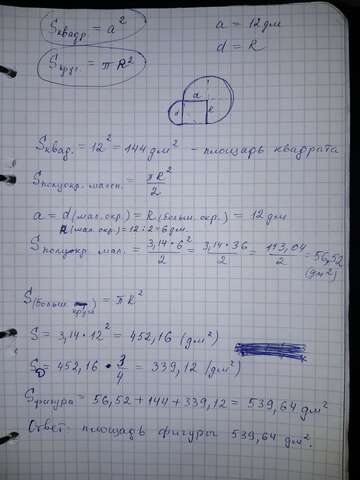 Sквадр = a²
a = 12 дм
d = R
Sкруг. = πR²
a
d
R
Sквад. = 12² = 144 дм² - площадь квадрата
Sполуокр. мален. = πR²/2
a = d (мал. окр.) = R (больш. окр.) = 12 дм
R (мал. окр.) = 12 : 2 = 6 дм.
Sполуокр. мал. = 3,14 · 6²/2 = 3,14 · 36/2 = 113,04/2 = 56,52 (дм²)
S(больш. круга) = πR²
S = 3,14 · 12² = 452,16 (дм²)
S = 452,16 · 3/4 = 339,12 (дм²)
Sфигура = 56,52 + 144 + 339,12 = 539,64 дм²
Ответ: площадь фигуры 539,64 дм².